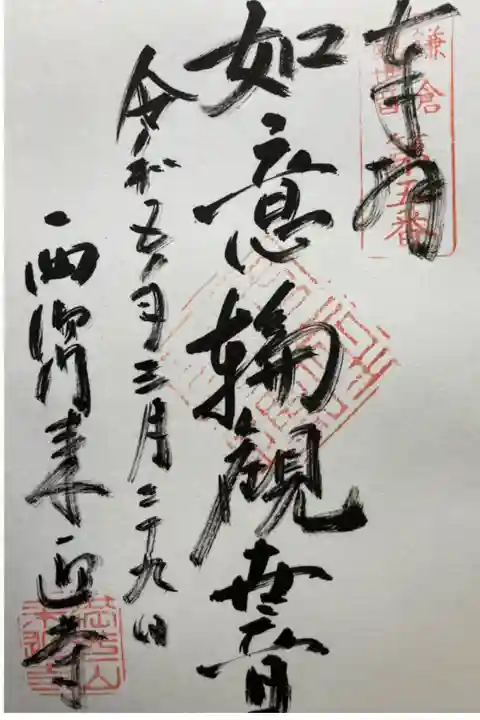 奉拝
鎌倉
第五番
如意輪観世音
令和五年三月二十九日
西御門来迎寺